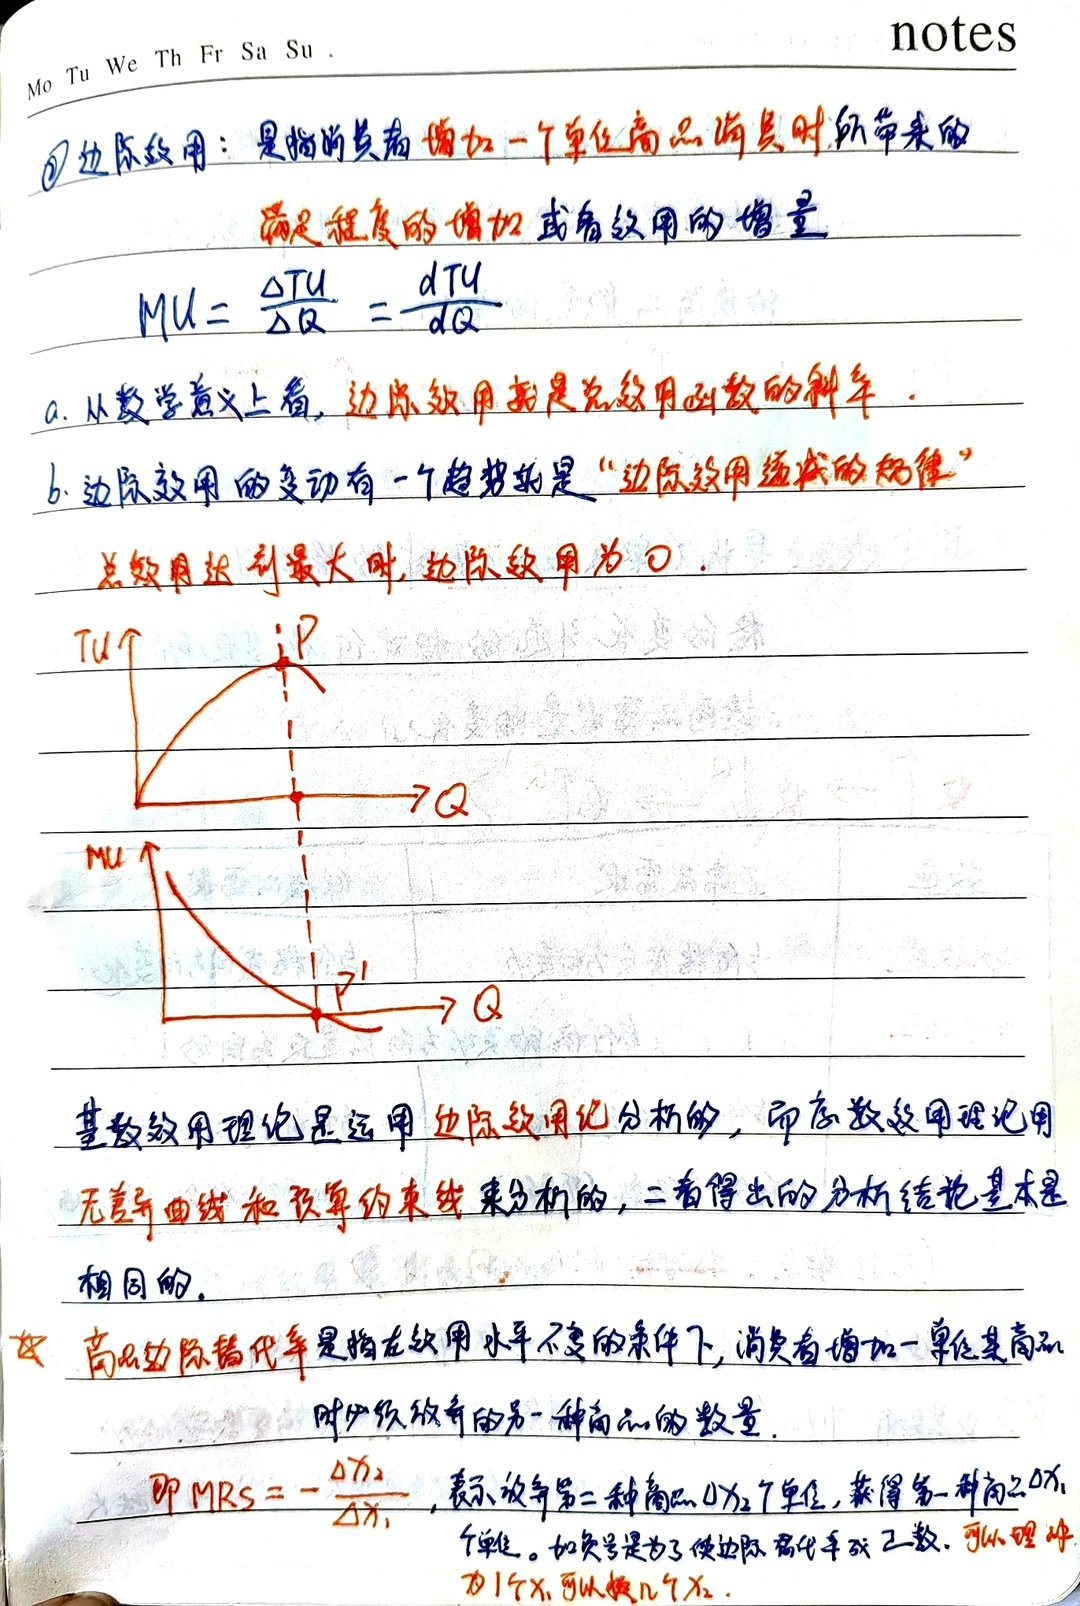 notes
Mo Tu We Th Fr Sa Su .
② 边际效用：是指消费者增加一个单位商品消费时所带来的
满足程度的增加或者效用的增量
MU = ΔTU/ΔQ = dTU/dQ
a. 从数学意义上看，边际效用就是总效用函数的斜率．
b. 边际效用的变动有一个趋势就是“边际效用递减的规律”
总效用达到最大时，边际效用为0．
TU P
Q
MU
P' Q
基数效用理论是运用边际效用论分析的，而序数效用理论用
无差异曲线和预算约束线来分析的，二者得出的分析结论基本是
相同的。
☆ 商品边际替代率是指在效用水平不变的条件下，消费者增加一单位某商品
时必须放弃的另一种商品的数量．
即 MRS = - ΔX₂/ΔX₁，表示放弃第二种商品ΔX₂个单位，获得第一种商品ΔX₁
个单位。加负号是为了使边际替代率成正数．可以理解
为1个X₁可以换几个X₂．